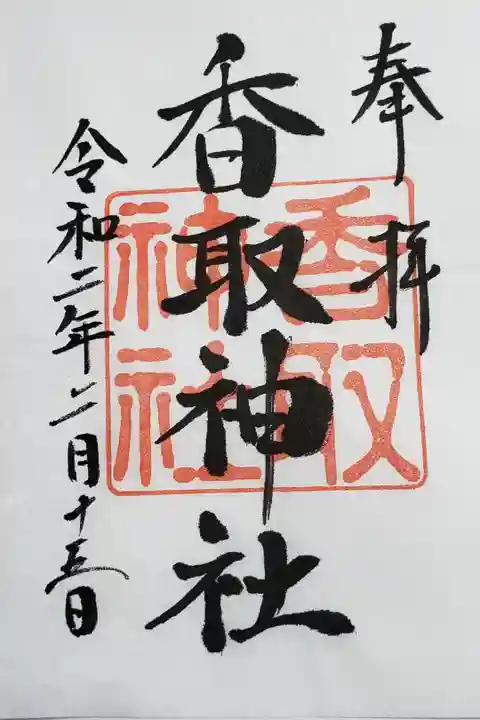 奉拝
香取神社
香取神社
令和二年二月十五日